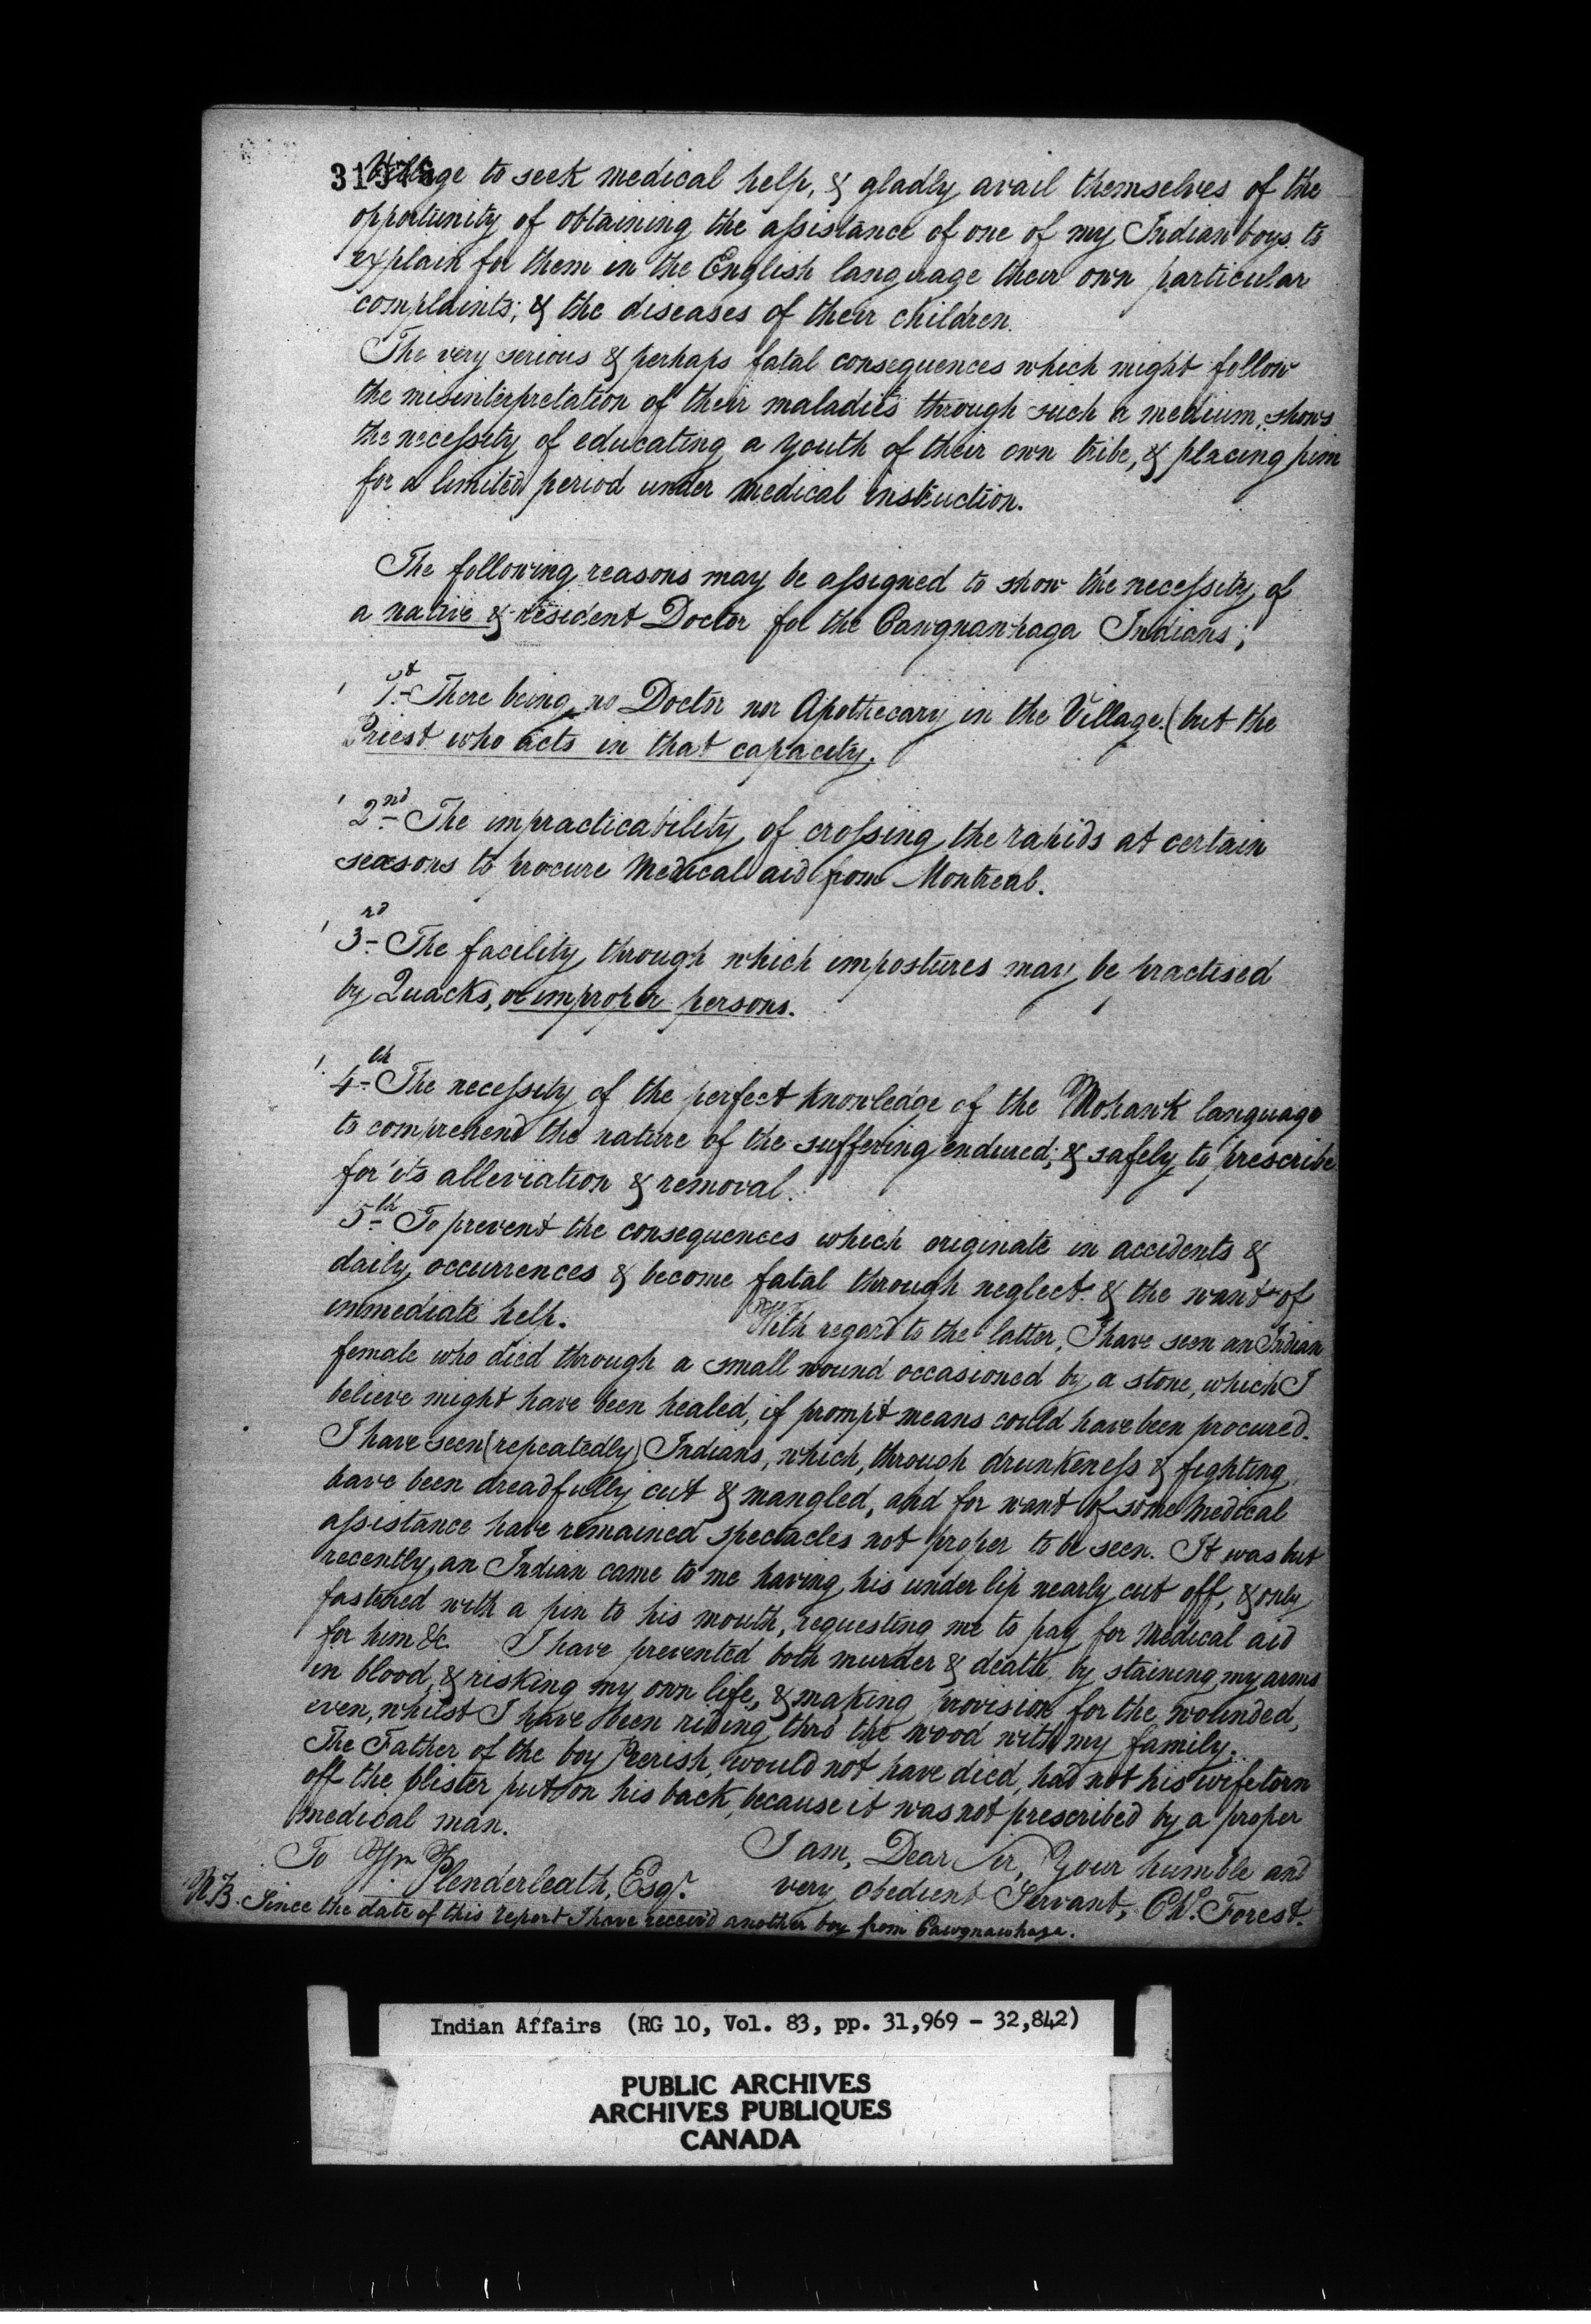 Village to seek medical help, & gladly avail themselves of the
opportunity of obtaining the assistance of one of my Indian boys, to
explain for them in the English language their own particular
complaints; & the diseases of their children.
The very serious & perhaps fatal consequences which might follow
the misinterpretation of their maladies through such a medium, shows
the necessity of educating a youth of their own tribe, & placing him
for a limited period under medical instruction.
The following reasons may be assigned to show the necessity of
a native & resident Doctor for the Cawgnawhaga Indians;
1st There being no Doctor nor Apothecary in the Village. (but the
Priest who acts in that capacity.
2nd The impracticability of crossing the rapids at certain
seasons to procure Medical aid from Montreal.
3rd The facility through which impostures may be practised
by Quacks, or improper persons.
4th The necessity of the perfect knowledge of the Mohawk language
to comprehend the nature of the suffering endured; & safely to prescribe
for its alleviation & removal.
5th To prevent the consequences which originate in accidents &
daily occurrences & become fatal through neglect & the want of
immediate help. With regard to the latter, I have seen an Indian
female who died through a small wound occasioned by a stone, which I
believe might have been healed, if prompt means could have been procured.
I have seen (repeatedly) Indians, which, through drunkeness & fighting
have been dreadfully cut & mangled, and for want of some Medical
assistance have remained spectacles not proper to be seen. It was but
recently, an Indian came to me having his under lip nearly cut off, & only
fastened with a pin to his mouth, requesting me to pay for Medical aid
for him &c. I have prevented both murder & death by staining my arms
in blood, & risking my own life, & making provision for the wounded,
even, whilst I have been riding thro the wood with my family.
The Father of the boy would not have died, had not his wife torn
off the blister put on his back, because it was not prescribed by a proper
medical man.
I am, Dear Sir, Your humble and
To Wm. Plenderleath, Esqr. very obedient Servant, Chs. Forest.
NB. Since the date of this report I have receiv'd another boy from Cawgnawhaga.
Indian Affairs (RG 10, Vol. 83, pp. 31,969 - 32,842)
PUBLIC ARCHIVES
ARCHIVES PUBLIQUES
CANADA